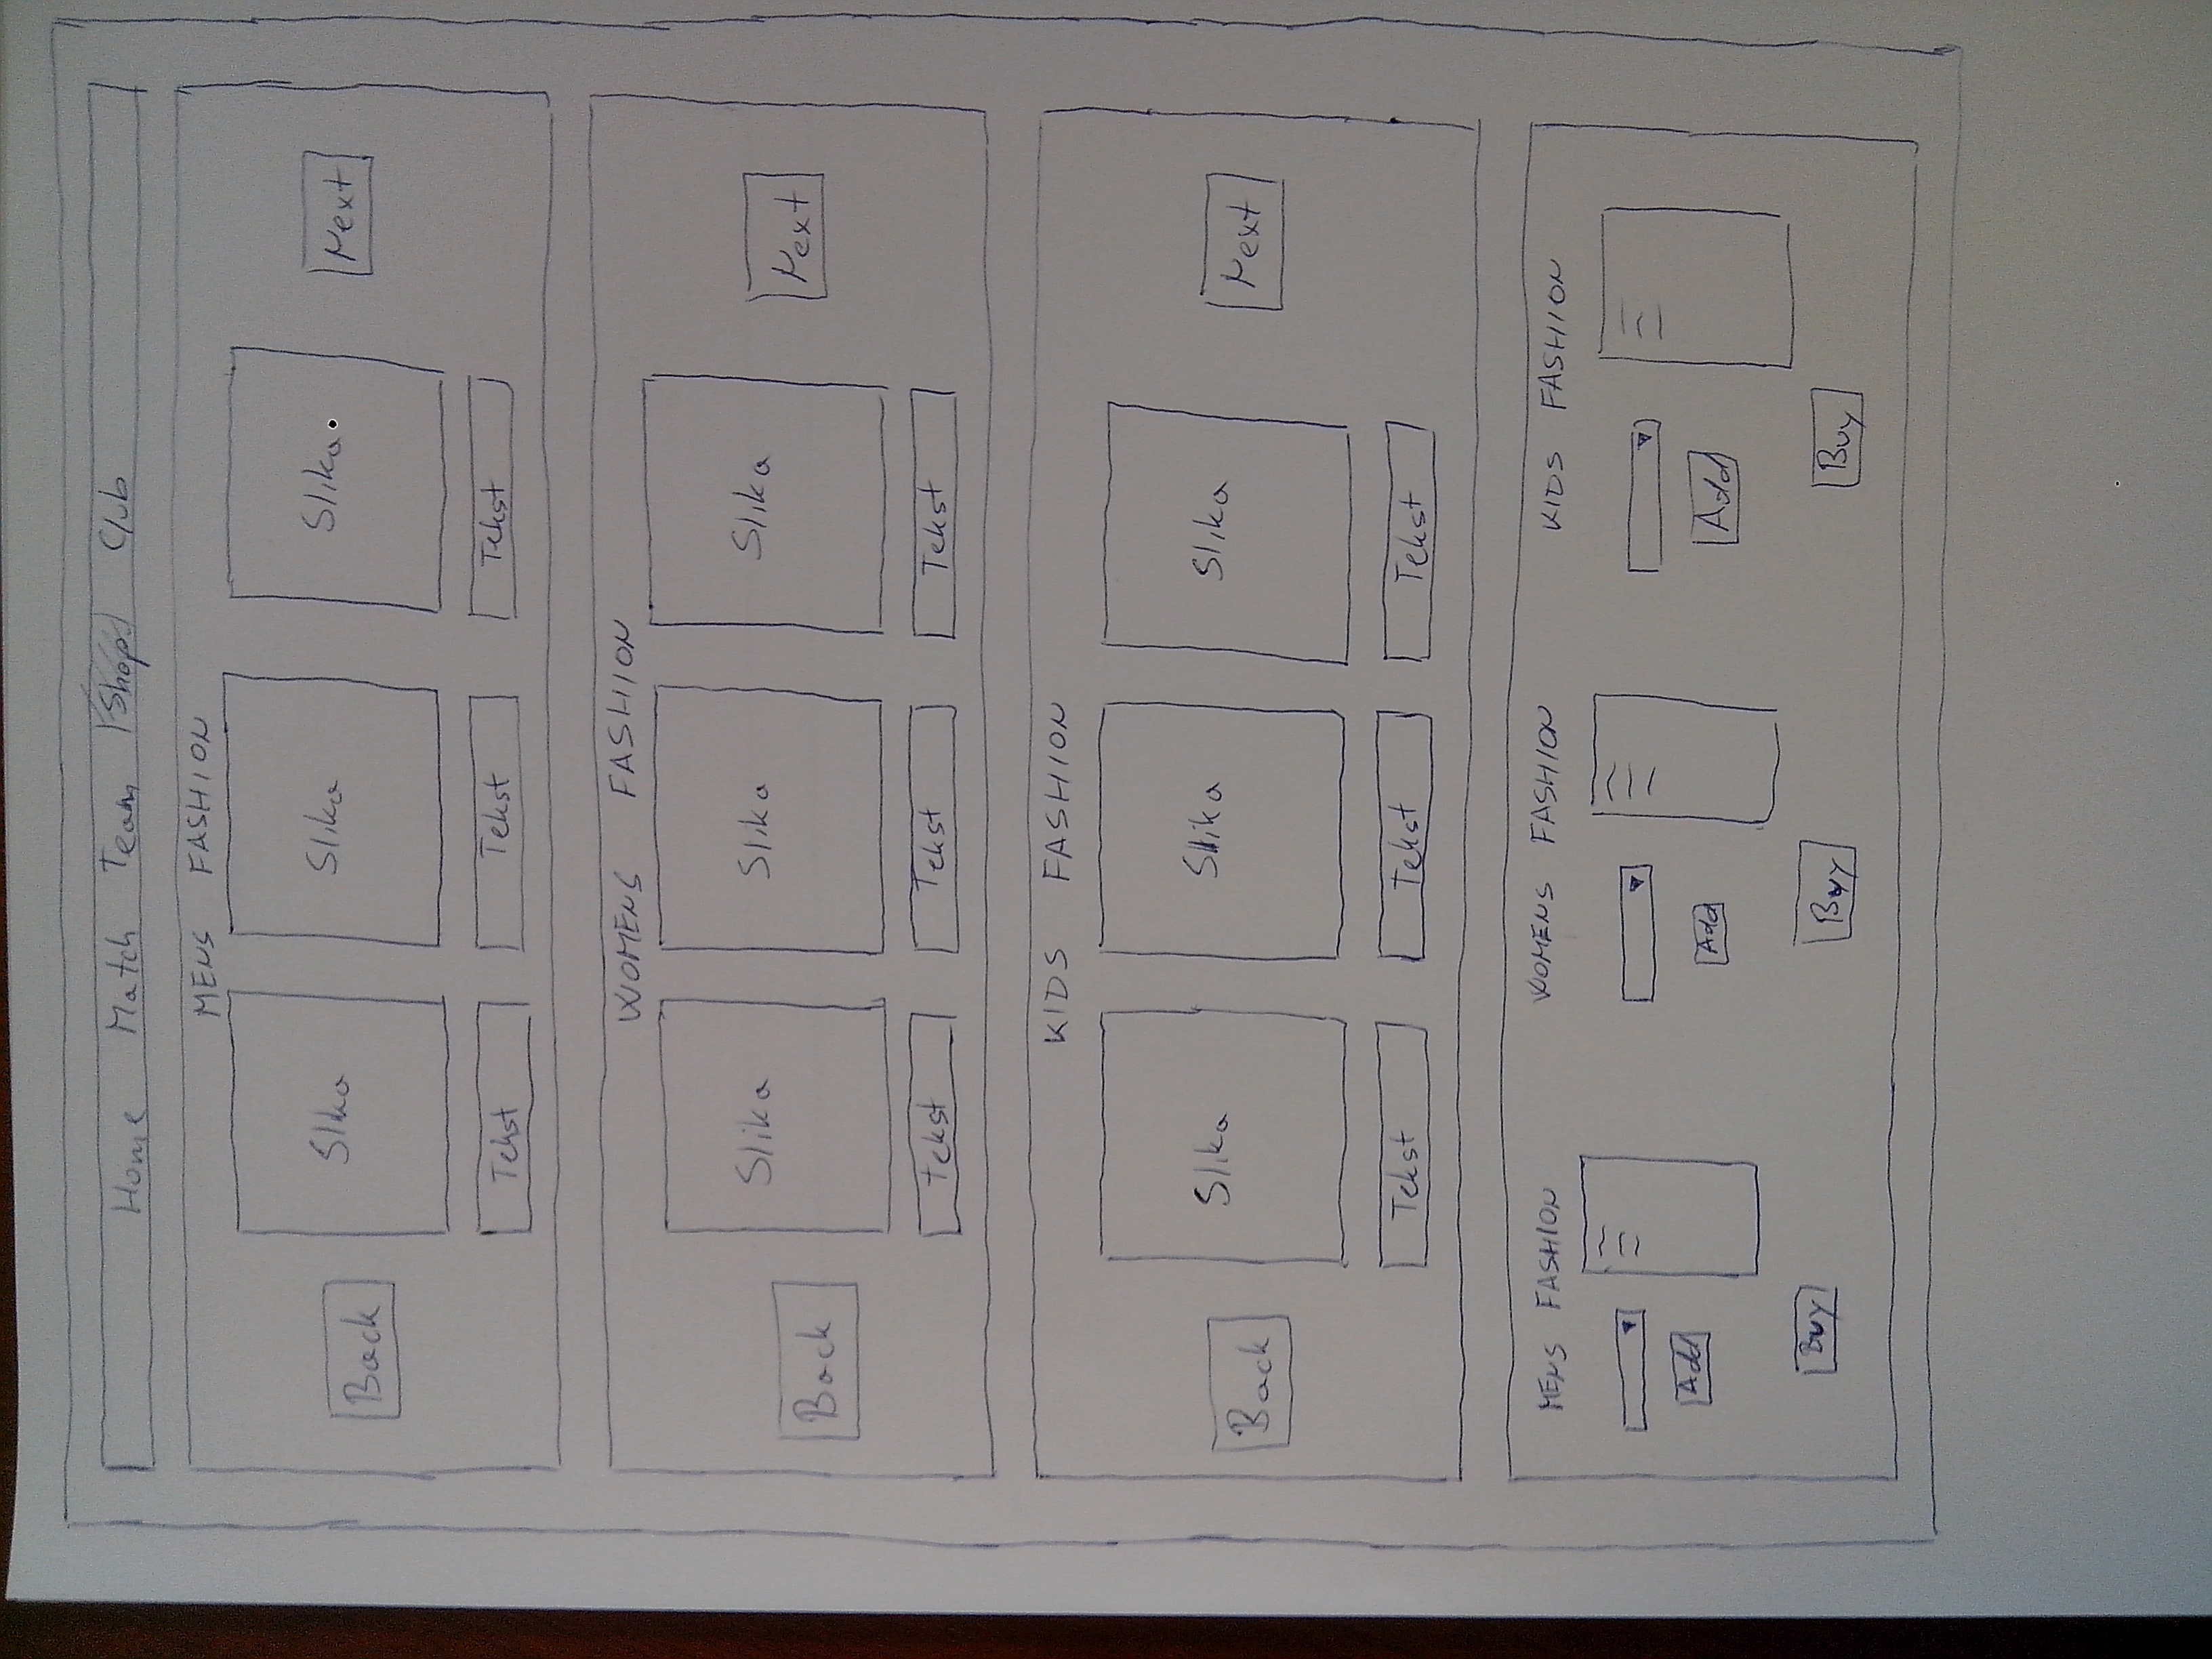 Home Match Team Shop Club
MENS FASHION
Back Slika Slika Slika Next
Tekst Tekst Tekst
WOMENS FASHION
Back Slika Slika Slika Next
Tekst Tekst Tekst
KIDS FASHION
Back Slika Slika Slika Next
Tekst Tekst Tekst
MENS FASHION WOMENS FASHION KIDS FASHION
Add Add Add
Buy Buy Buy